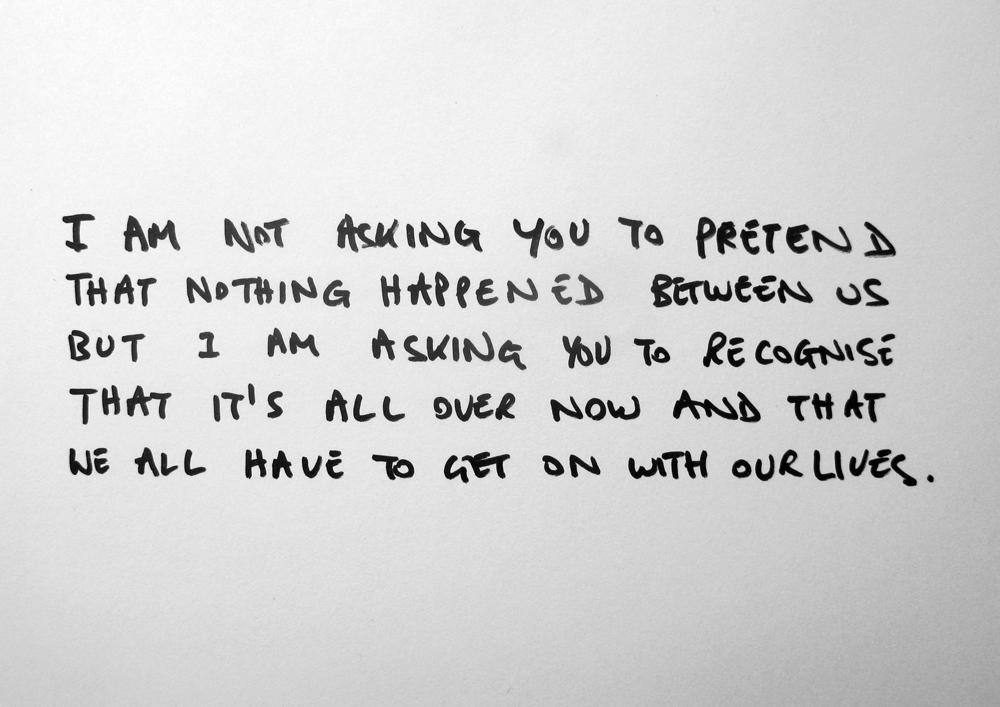 I AM NOT ASKING YOU TO PRETEND
THAT NOTHING HAPPENED BETWEEN US
BUT I AM ASKING YOU TO RECOGNISE
THAT IT'S ALL OVER NOW AND THAT
WE ALL HAVE TO GET ON WITH OUR LIVES.